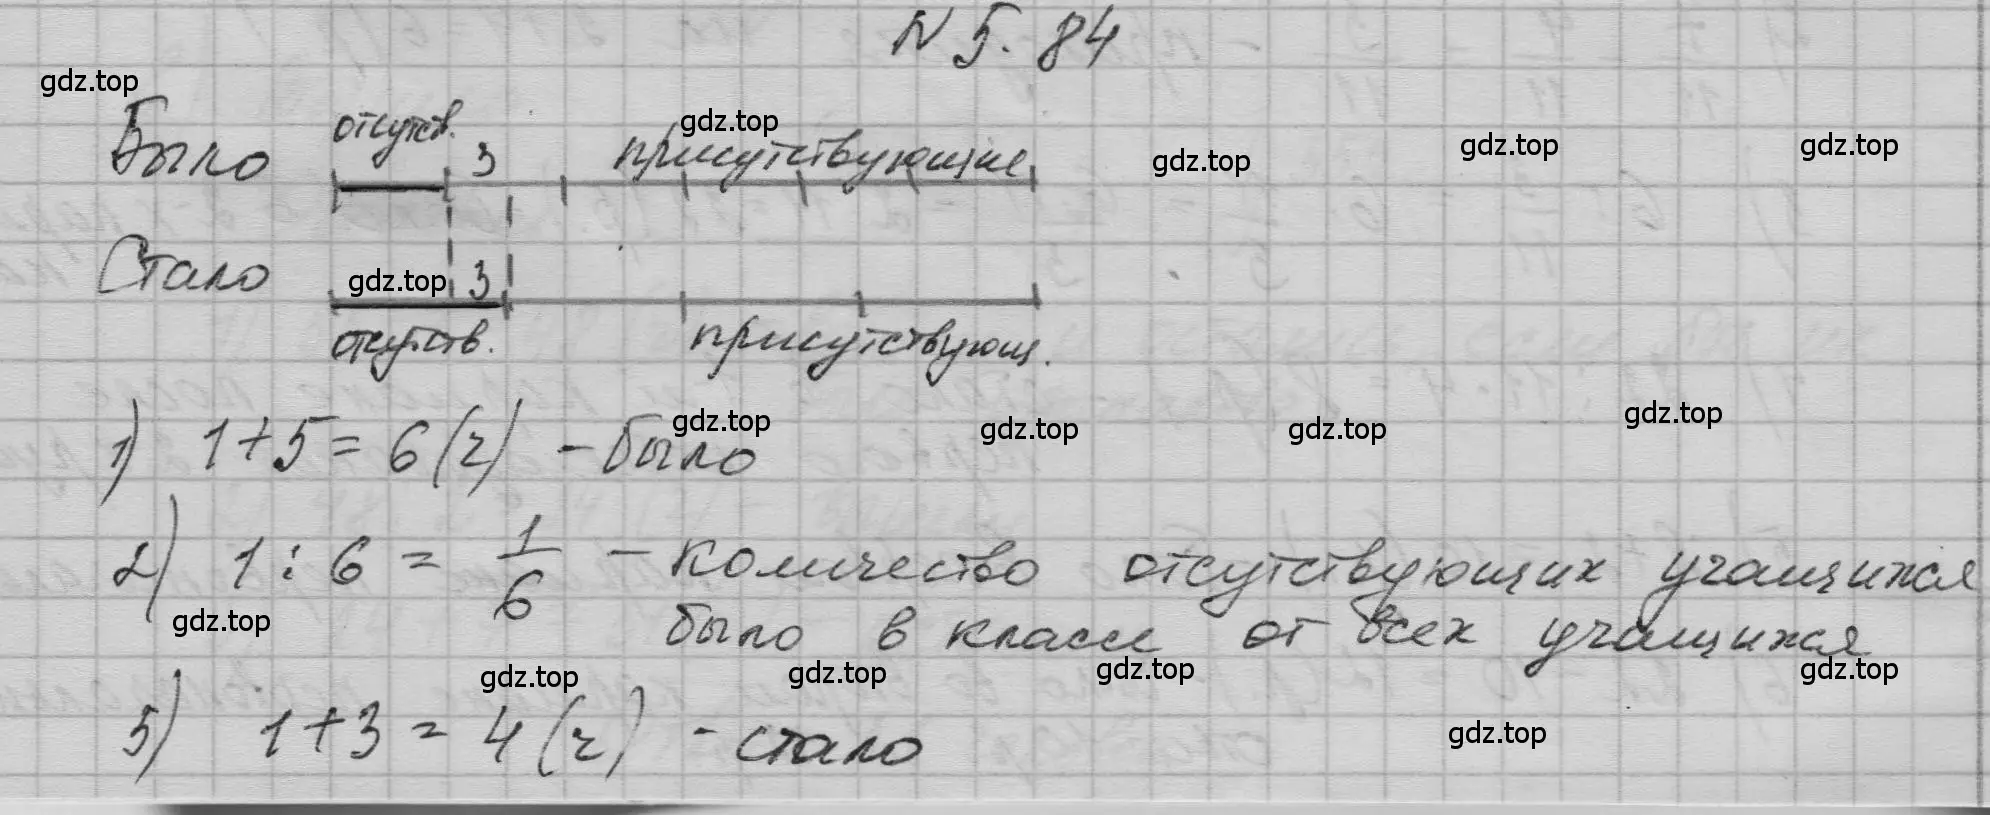 N 5.84
gdz.top
отсутств.
gdz.top
Было 3 присутствующие
gdz.top gdz.top gdz.top
Стало gdz.top 3
отсутств. присутствующ.
1) 1+5=6(ч) - было
gdz.top gdz.top gdz.top gdz.top
2) 1:6= 1/6 - количество отсутствующих учащихся
gdz.top
было в классе от всех учащихся
gdz.top gdz.top gdz.top gdz.top
3) 1+3=4(ч) - стало
gdz.top